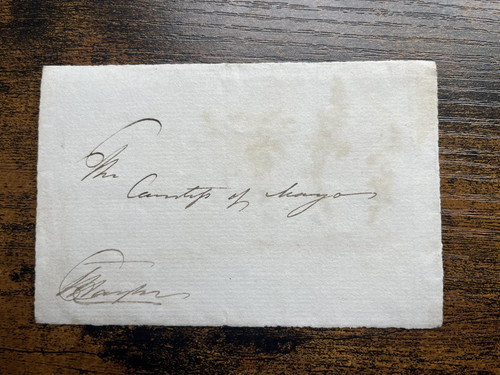 The
Countess of Mayo